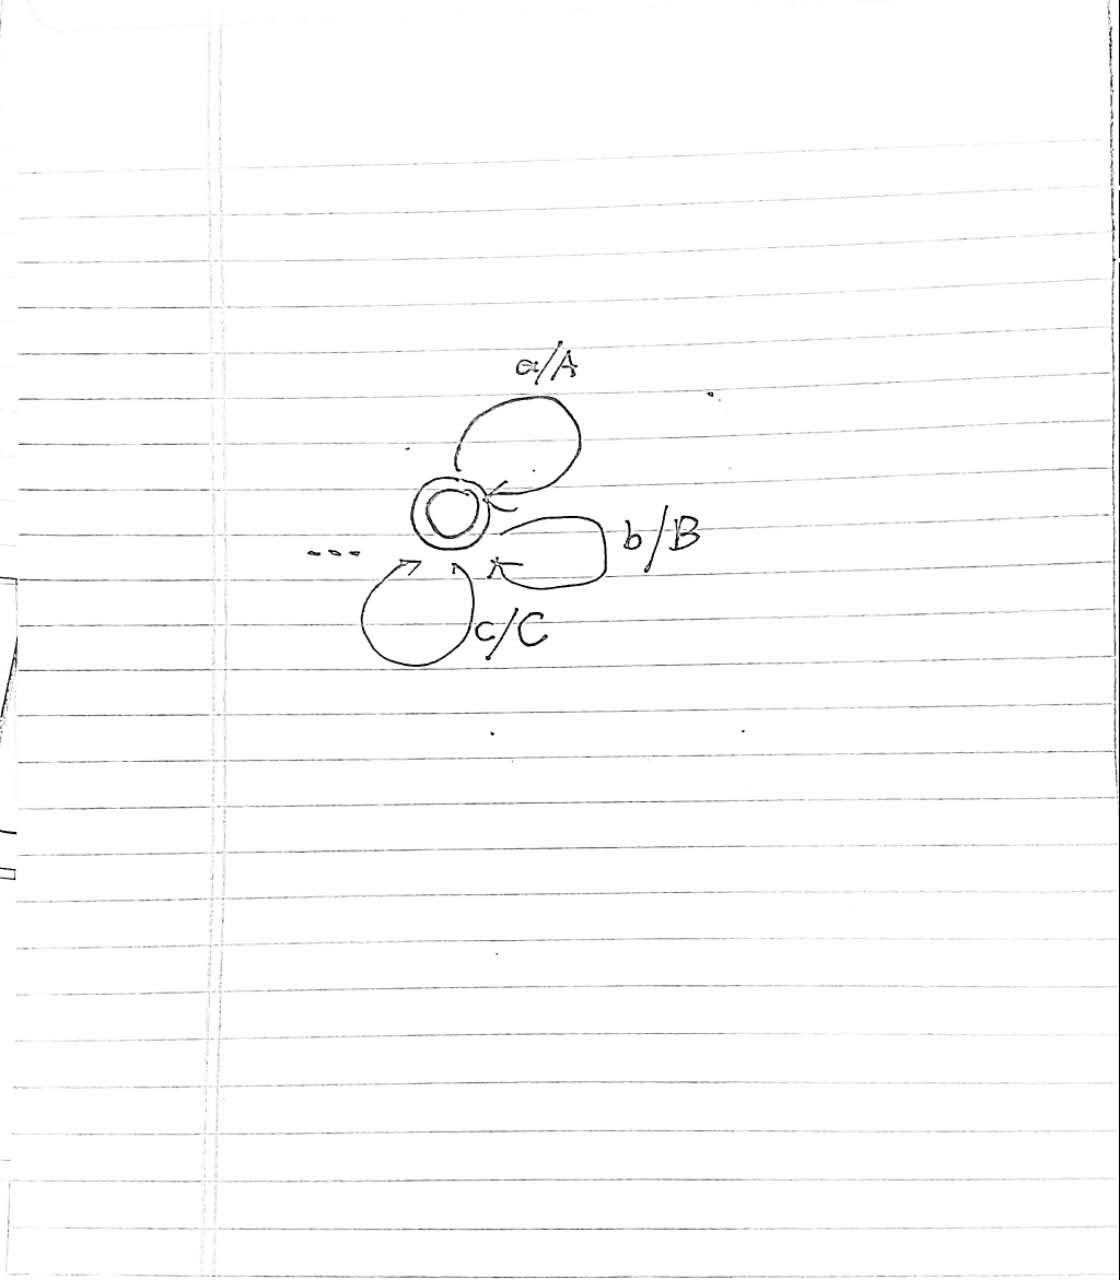 a/A
b/B
...
c/C